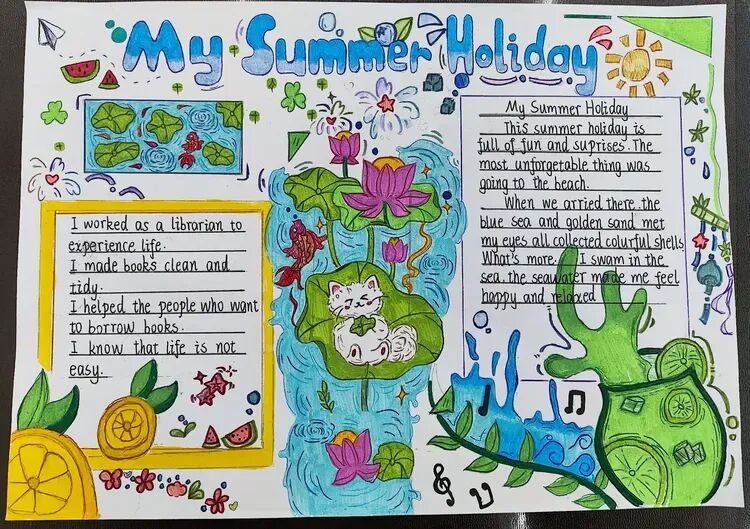 My Summer Holiday
I worked as a librarian to
experience life.
I made books clean and
tidy.
I helped the people who want
to borrow books.
I know that life is not
easy.
My Summer Holiday
This summer holiday is
full of fun and suprises. The
most unforgetable thing was
going to the beach.
When we arried there. the
blue sea and golden sand met
my eyes all collected colurful shells
What's more. I swam in the
sea. the seawater made me feel
happy and reloxed